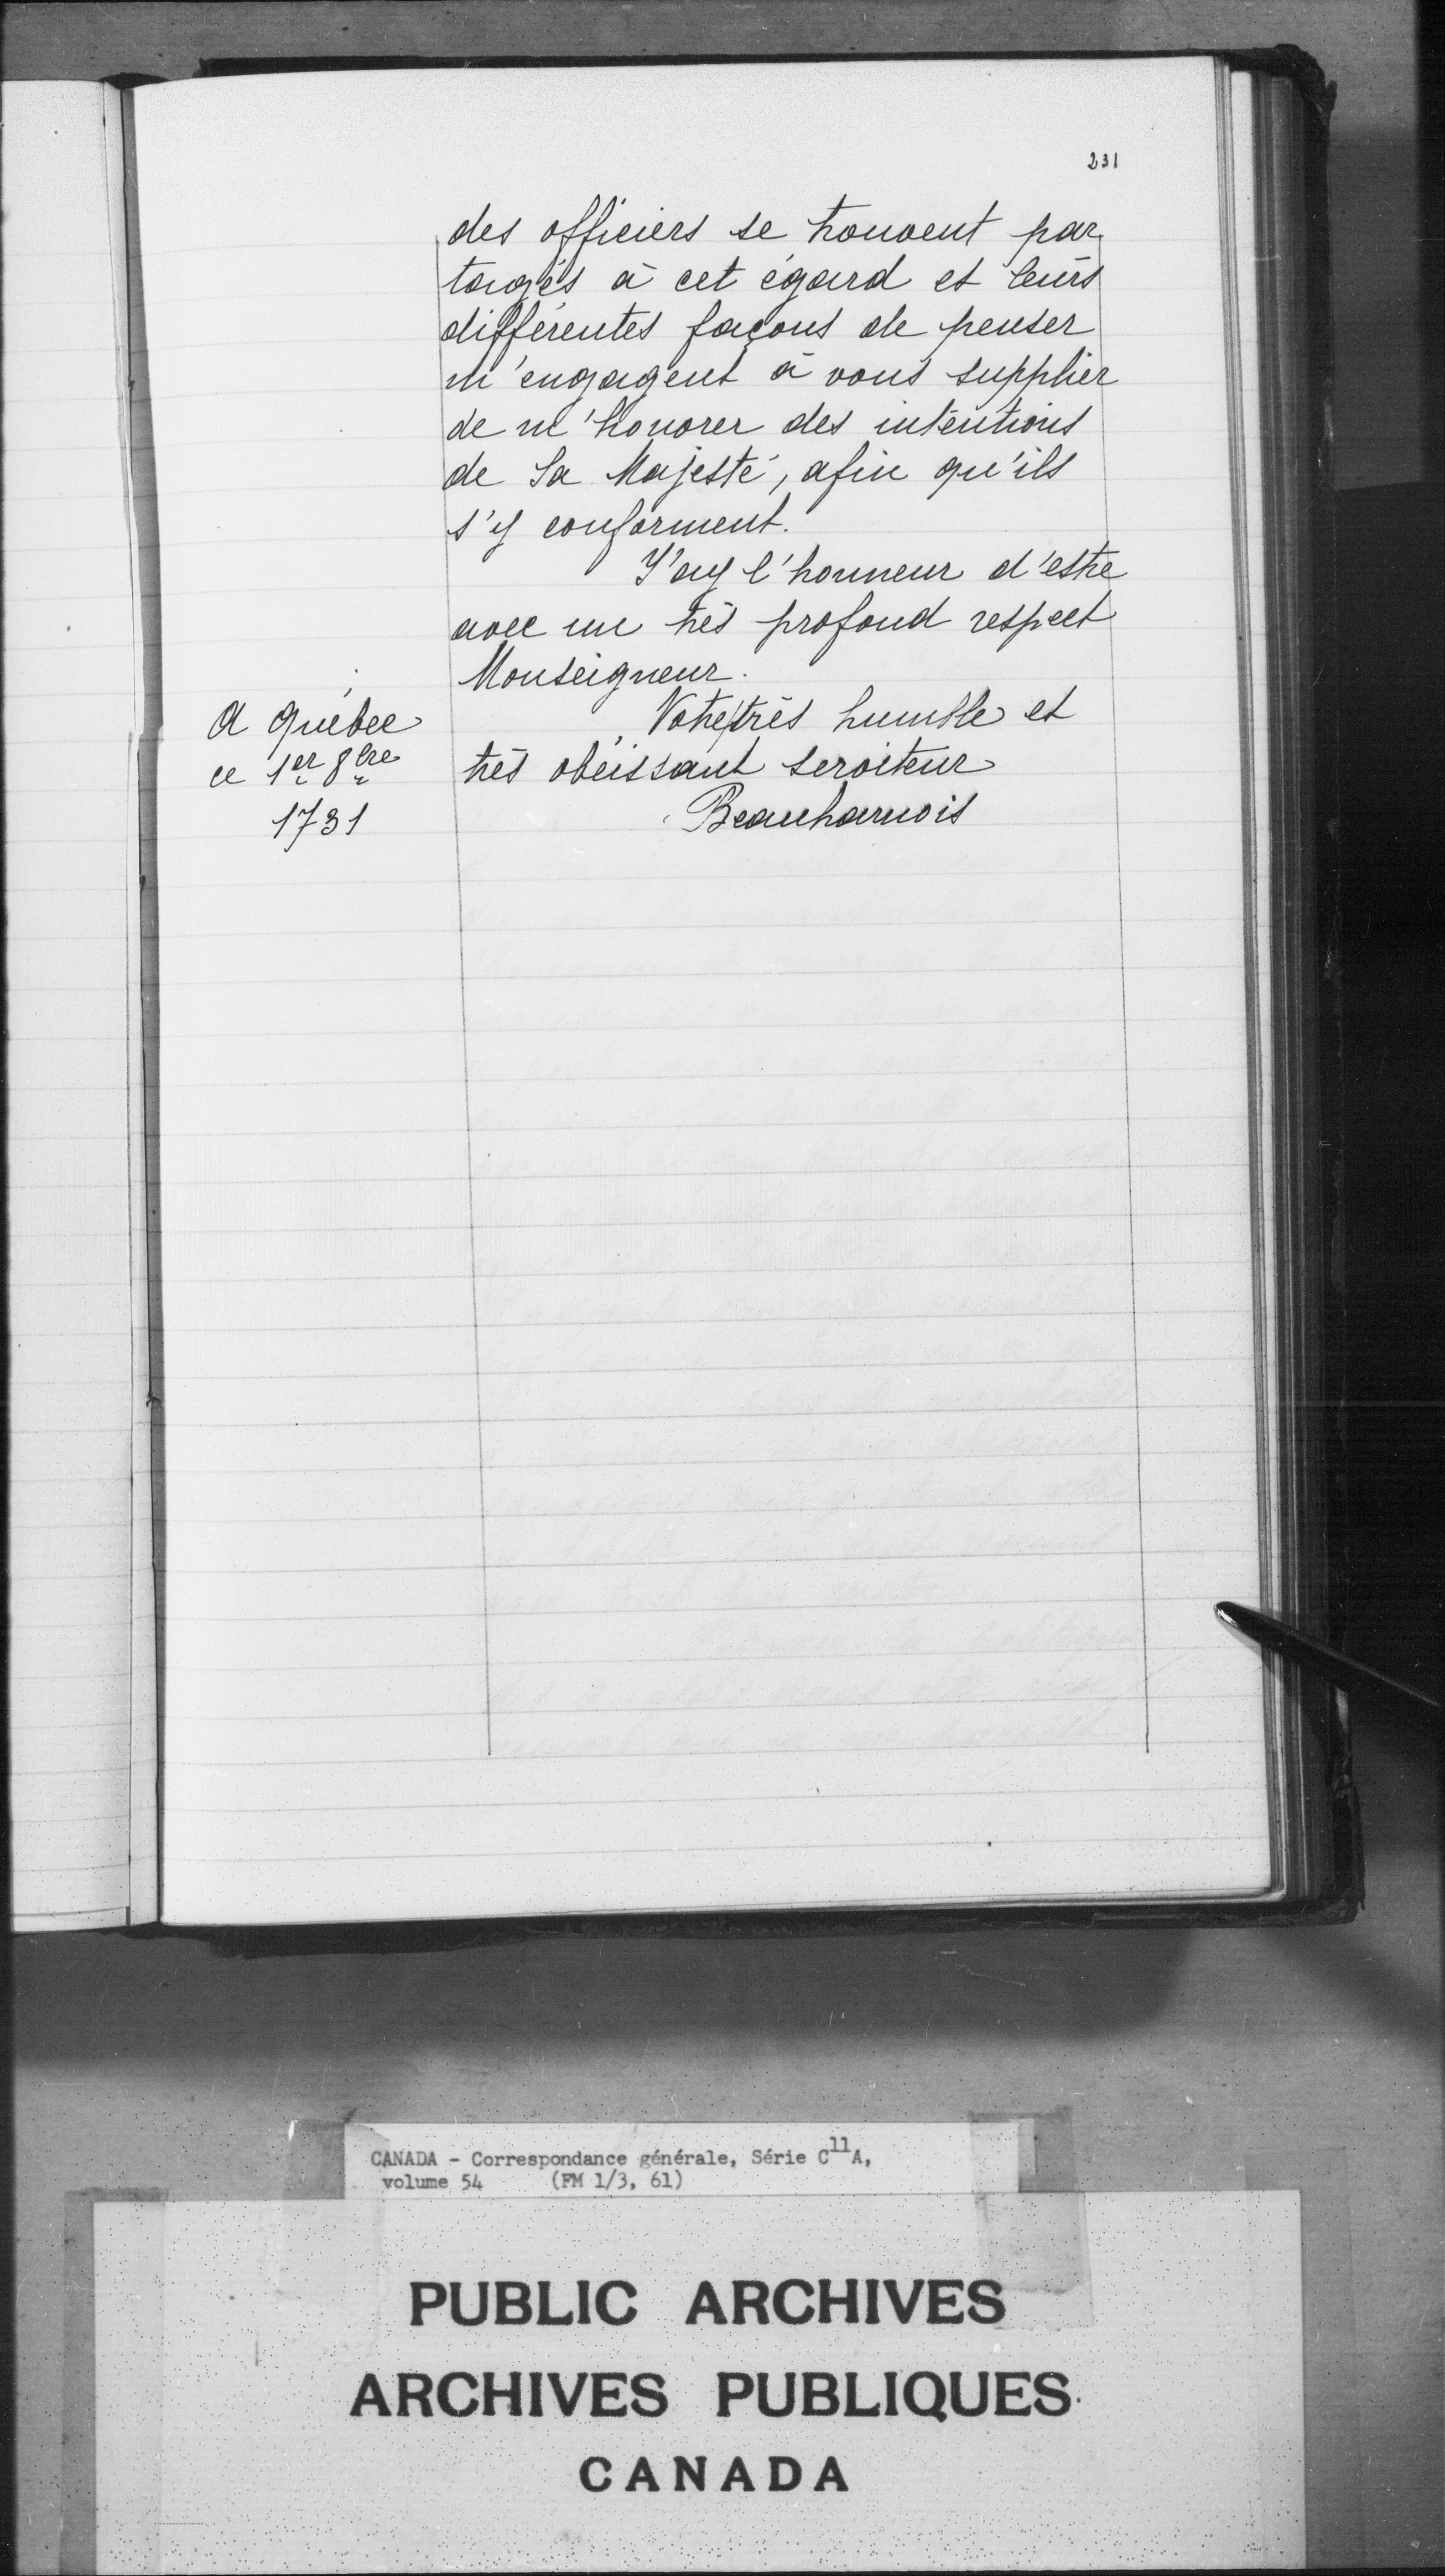 231
des officiers se trouvent par
tagés à cet égard et leurs
différentes façons de penser
m'engagent à vous supplier
de m'honorer des intentions
de Sa Majesté, afin qu'ils
s'y conforment.
J'ay l'honneur d'estre
avec un très profond respect
Monseigneur.
Votre très humble et
très obéissant serviteur
Beauharnois
A Québec
ce 1er 8bre
1731
CANADA - Correspondance générale, Série C11A,
volume 54 (FM 1/3, 61)
PUBLIC ARCHIVES
ARCHIVES PUBLIQUES
CANADA